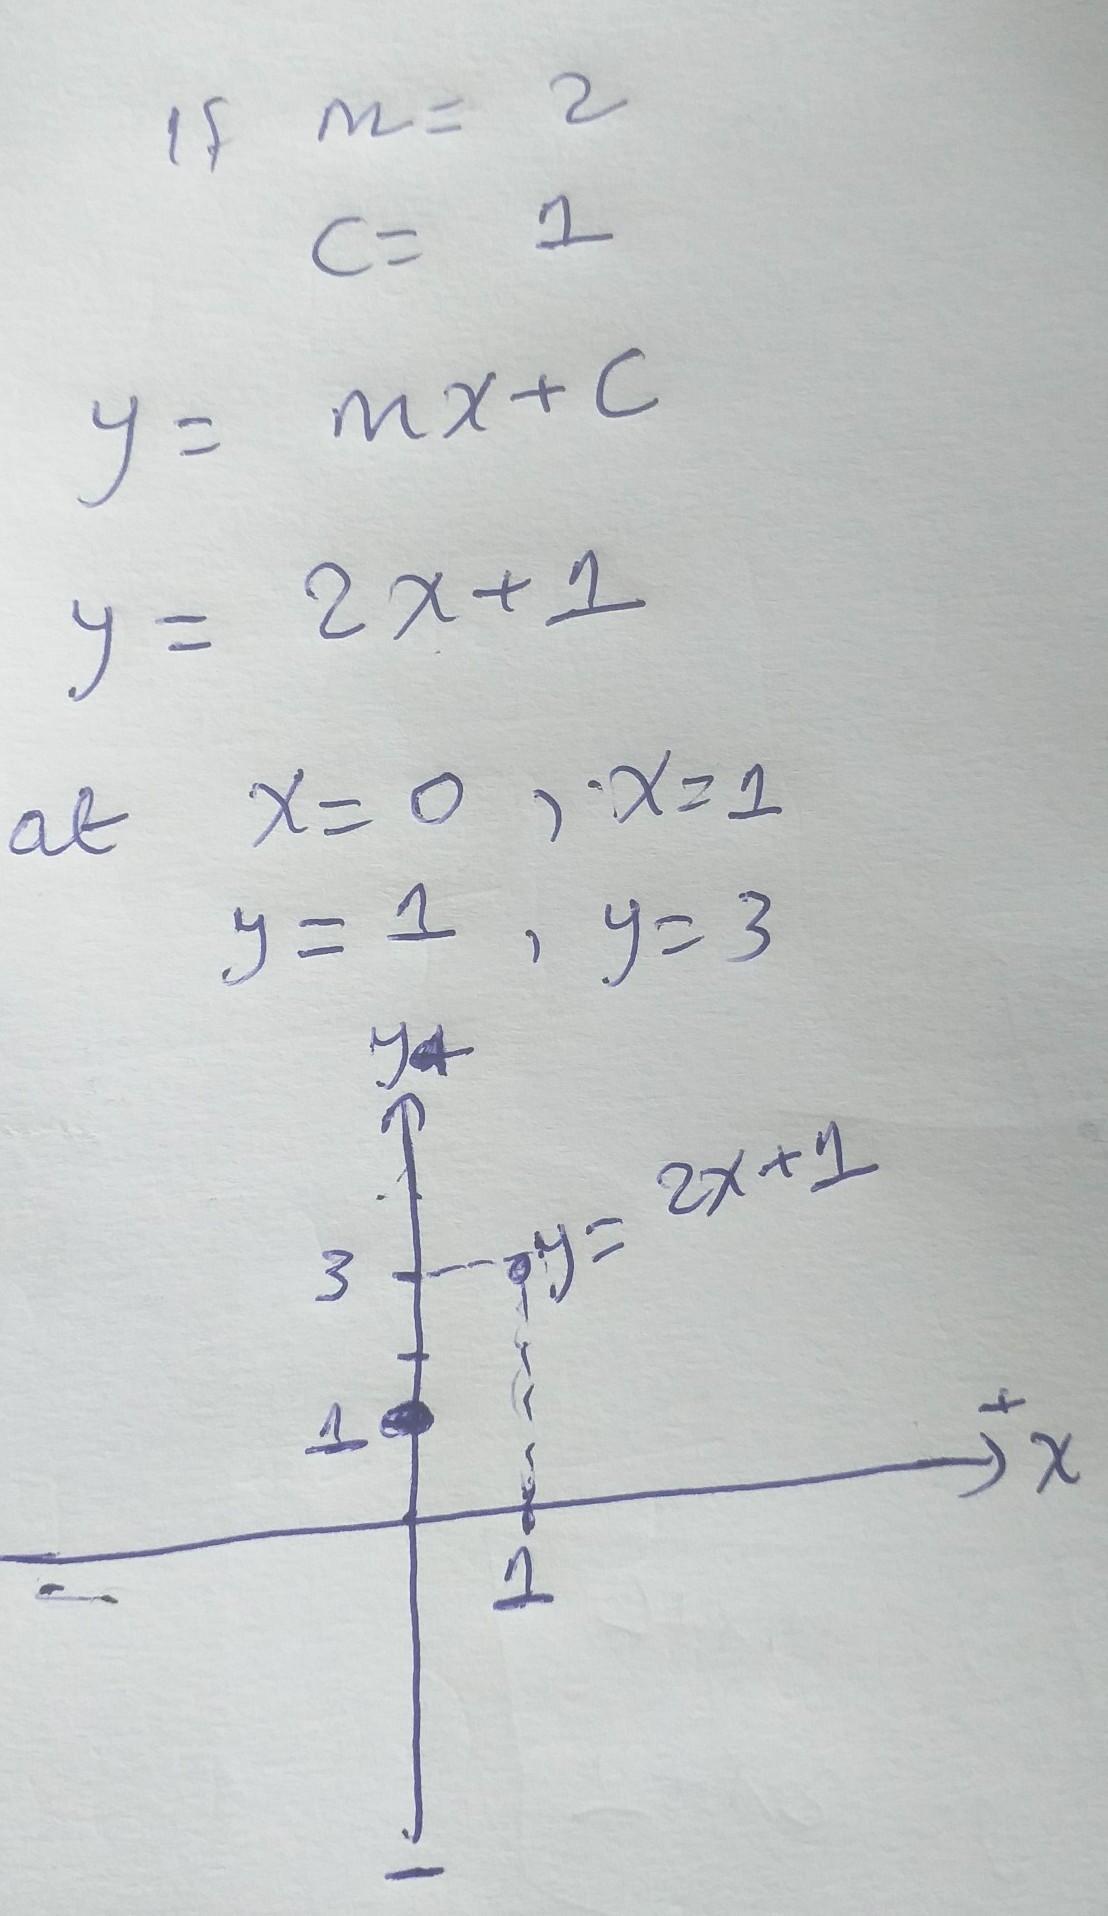 If m = 2
C = 1
y = mx + C
y = 2x + 1
at x = 0 , x = 1
y = 1 , y = 3
y +
3
y = 2x + 1
1
+
x
-
1
-